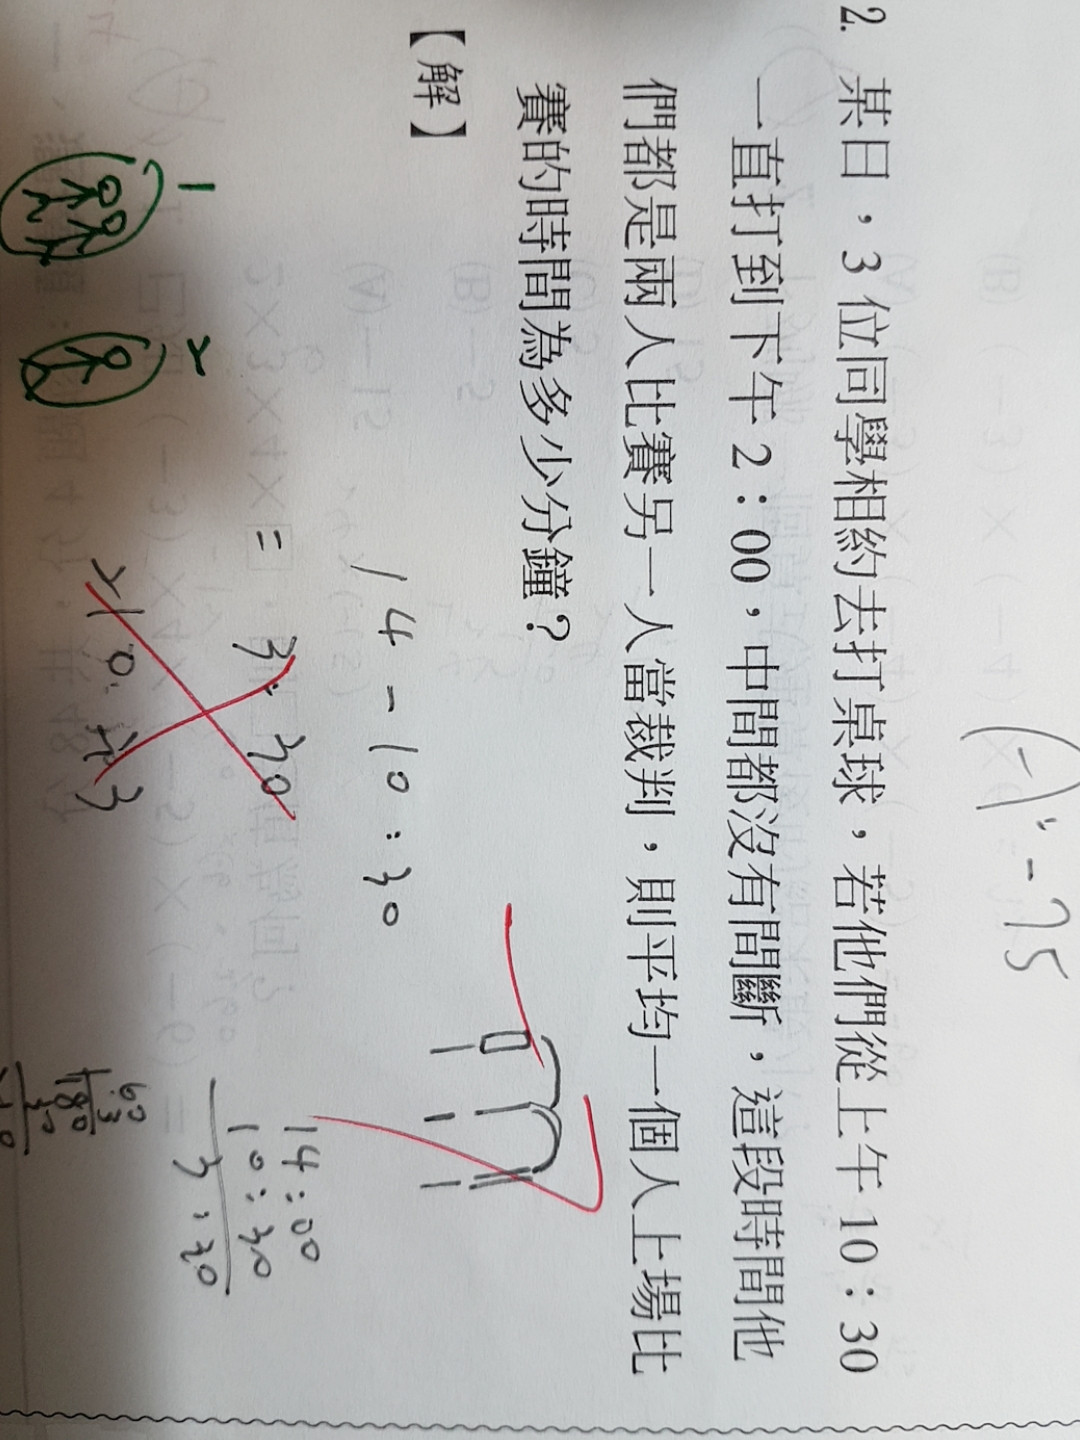 (-) -75
2. 某日，3 位同學相約去打桌球，若他們從上午 10：30
一直打到下午 2：00，中間都沒有間斷，這段時間他
們都是兩人比賽另一人當裁判，則平均一個人上場比
賽的時間為多少分鐘？
【解】
14 - 10 : 30
= 3. 30
14 : 00
10 : 30
3 : 30
1
2
60
3
180
30
210